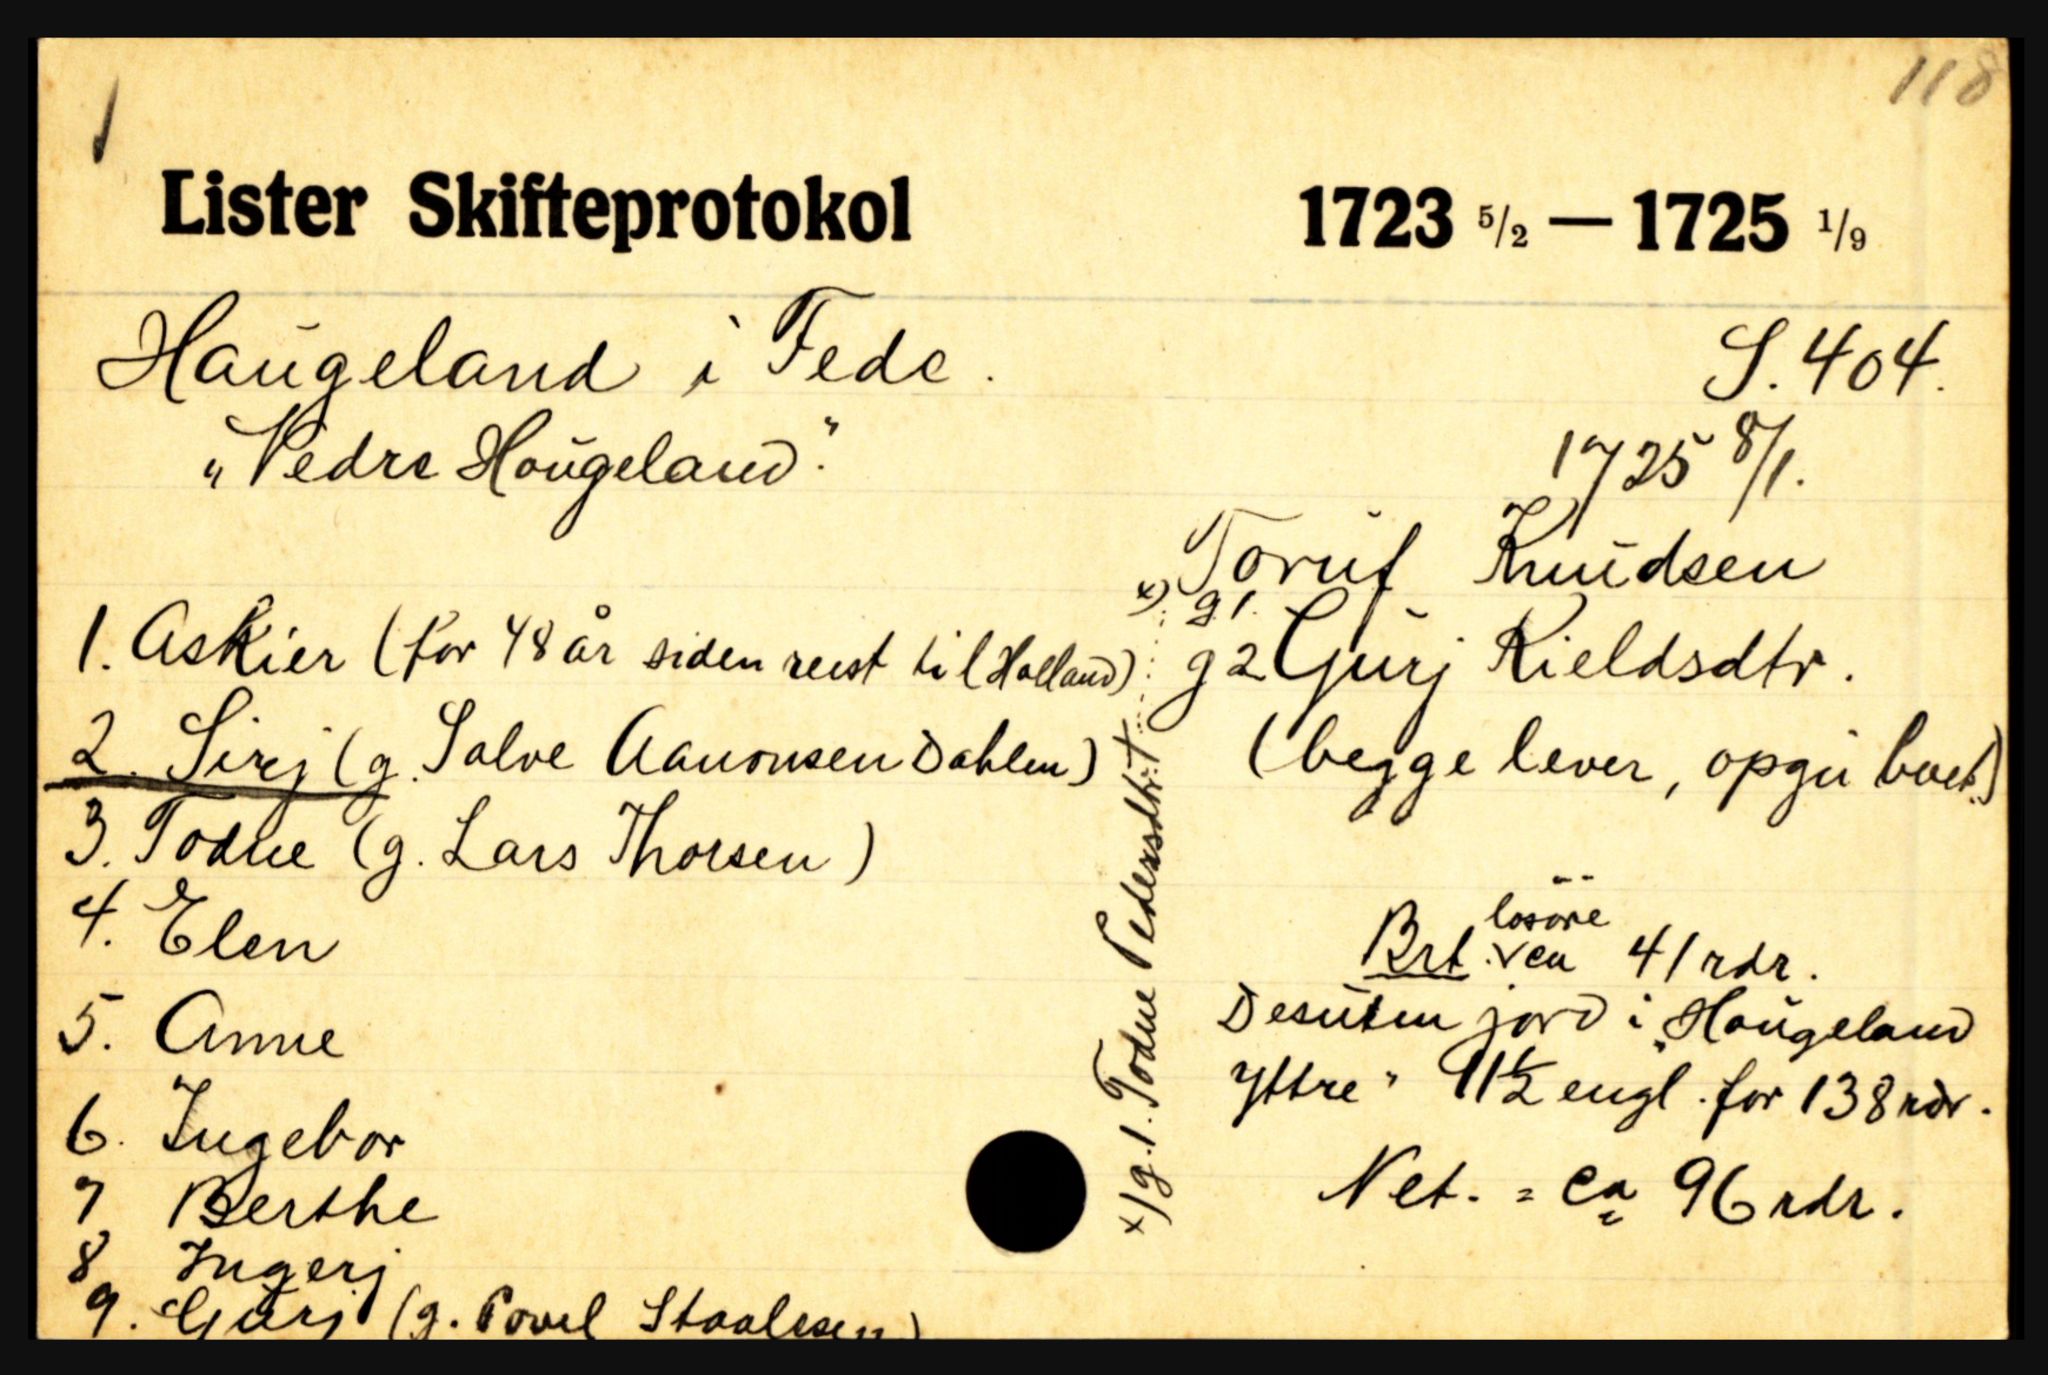 118
Lister Skifteprotokol 1723 5/2 — 1725 1/9
Haugeland i Fede.
S. 404.
"Nedre Hougeland."
1725 8/1.
Toruf Knudsen
x) g 1.
g 2 Gurj Kieldsdtr.
(begge lever, opgir boet)
1. Askier (for 48 år siden reist til Holland)
2. Sirj (g. Salve Aanonsen Dahlen)
3. Todne (g. Lars Thorsen)
4. Elen
5. Anne
6. Ingebor
7 Berthe
8 Ingerj
9. Gurj (g. Povel Staalesen)
x) g. 1. Todne Pedersdtr. †
Brt. løsöre ca 41 rdr.
Desuten jord i "Hougeland
Yttre" 11½ engl. for 138 rdr.
Net. = ca 96 rdr.